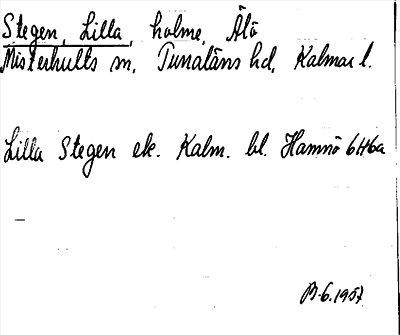 Stegen, Lilla, holme, Älö
Misterhults sn, Tunaläns hd, Kalmar l.
Lilla Stegen ek. Kalm. bl. Hamnö 6H6a
1957